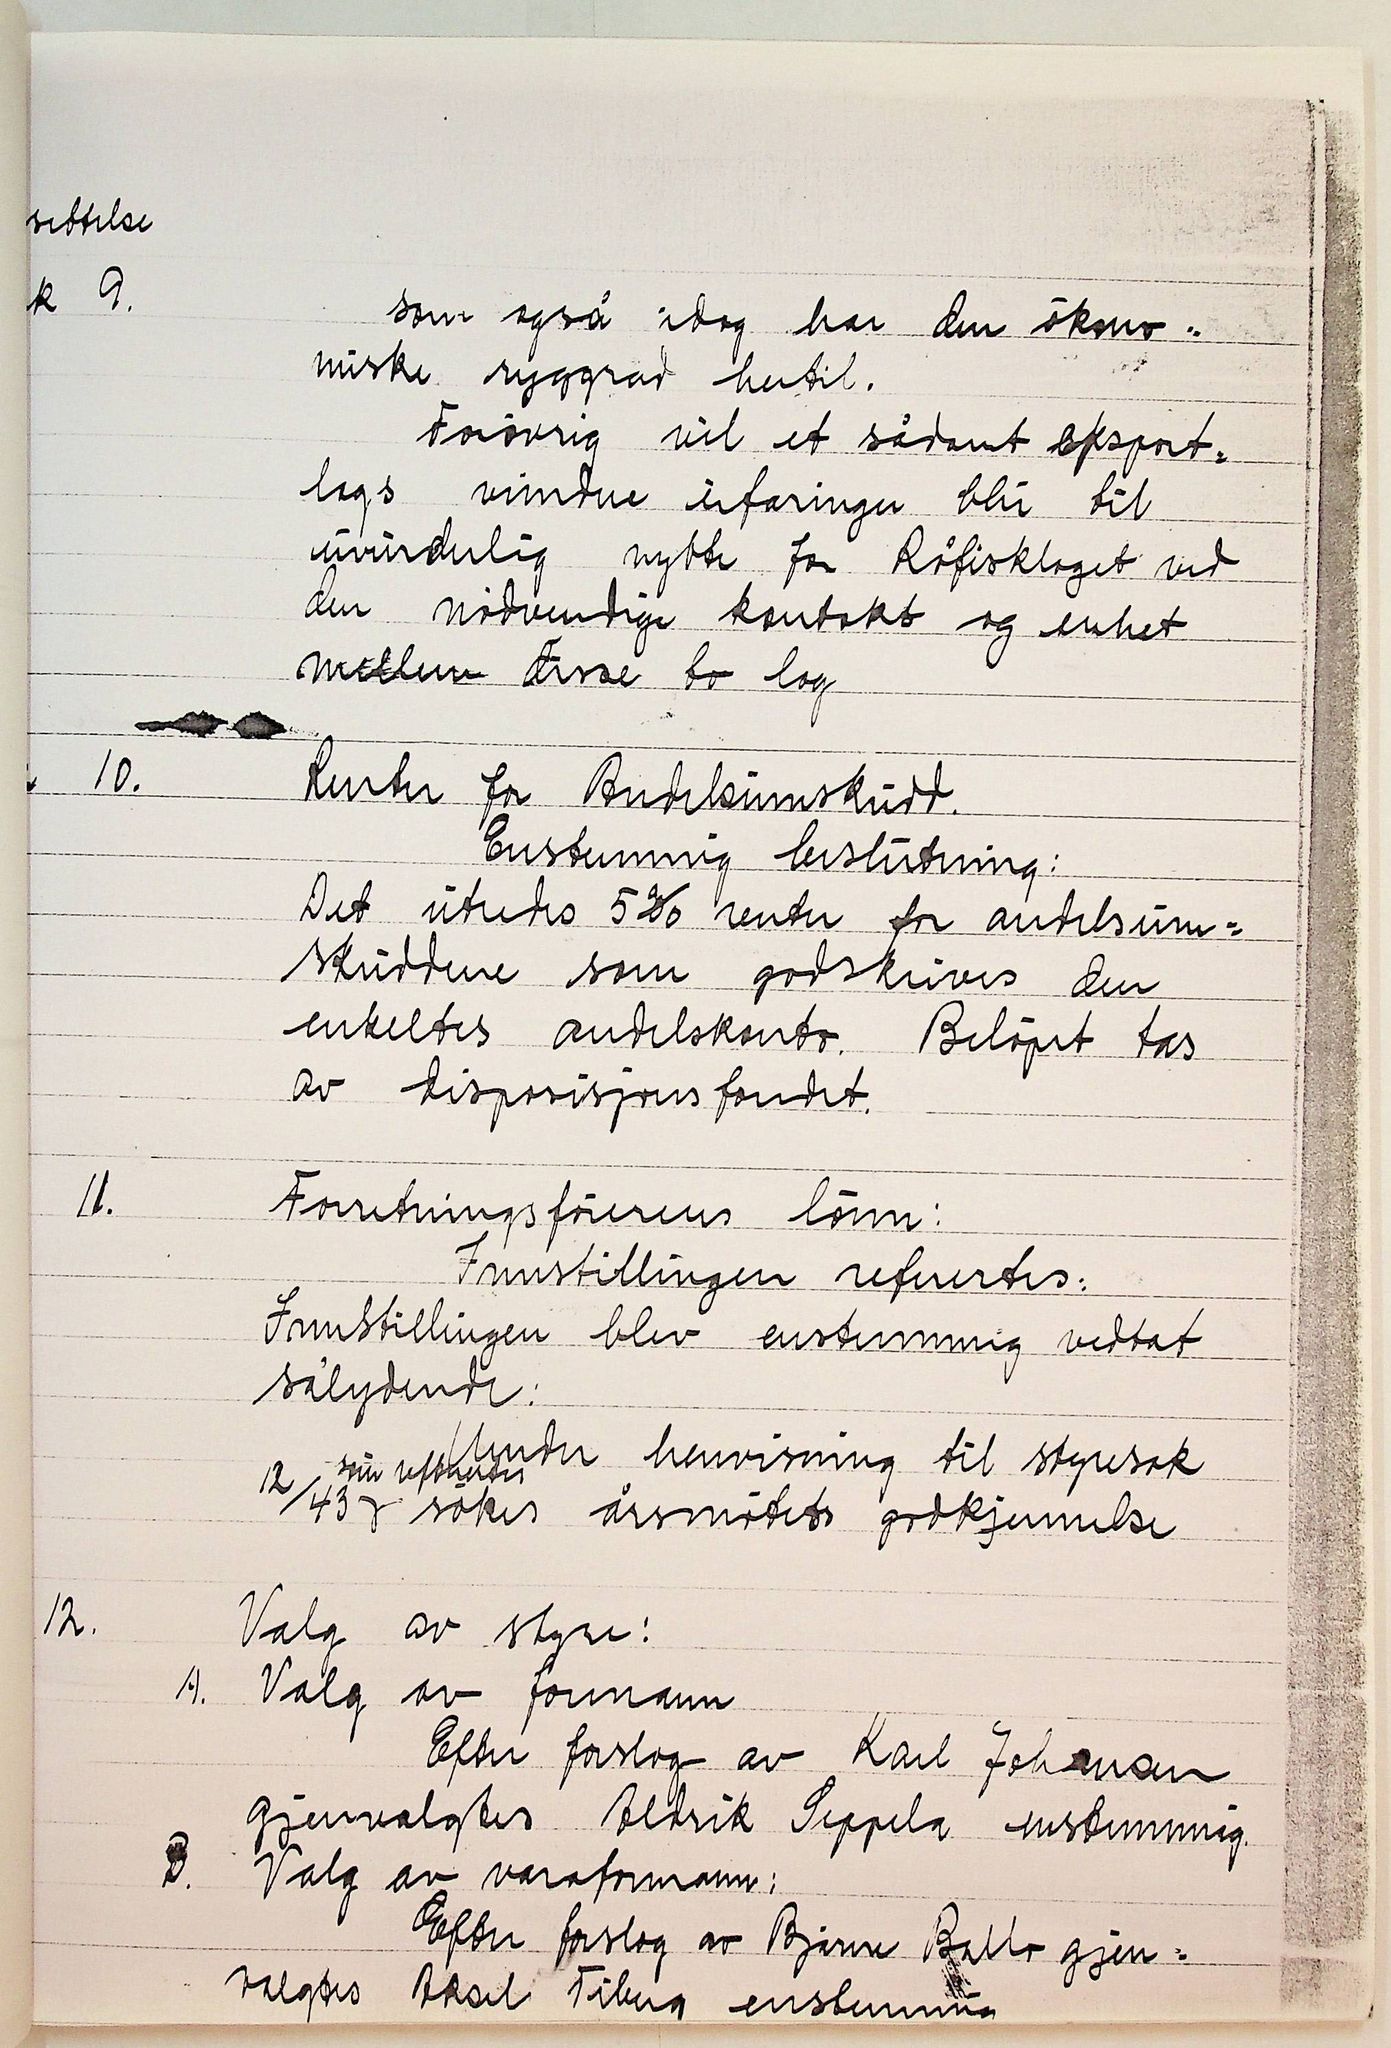 settelse
k 9. som også idag har den økono-
miske ryggrad hertil.
Forøvrig vil et sådant eksport-
lags vundne erfaringer bli til
uvurderlig nytte for Råfisklaget ved
den nødvendige kontakt og enhet
mellem disse to lag
10. Renter for Andelsinnskudd.
Enstemmig beslutning:
Det utredes 5% renter for andelsinn-
skuddene som godskrives den
enkeltes andelskonto. Beløpet tas
av disposisjonsfondet.
11. Forretningsførerens lønn:
Innstillingen refertes:
Innstillingen blev enstemmig vedtat
sålydende:
Under henvisning til styresak
som refertes
12/43 søkes årsmøtets godkjennelse
12. Valg av styre:
A. Valg av formann
Efter forslag av Karl Johansen
gjenvalgtes Aldrik Seppela enstemmig.
B. Valg av varaformann:
Efter forslag av Bjarne Ballo gjen-
valgtes Aksel Fiberg enstemmig